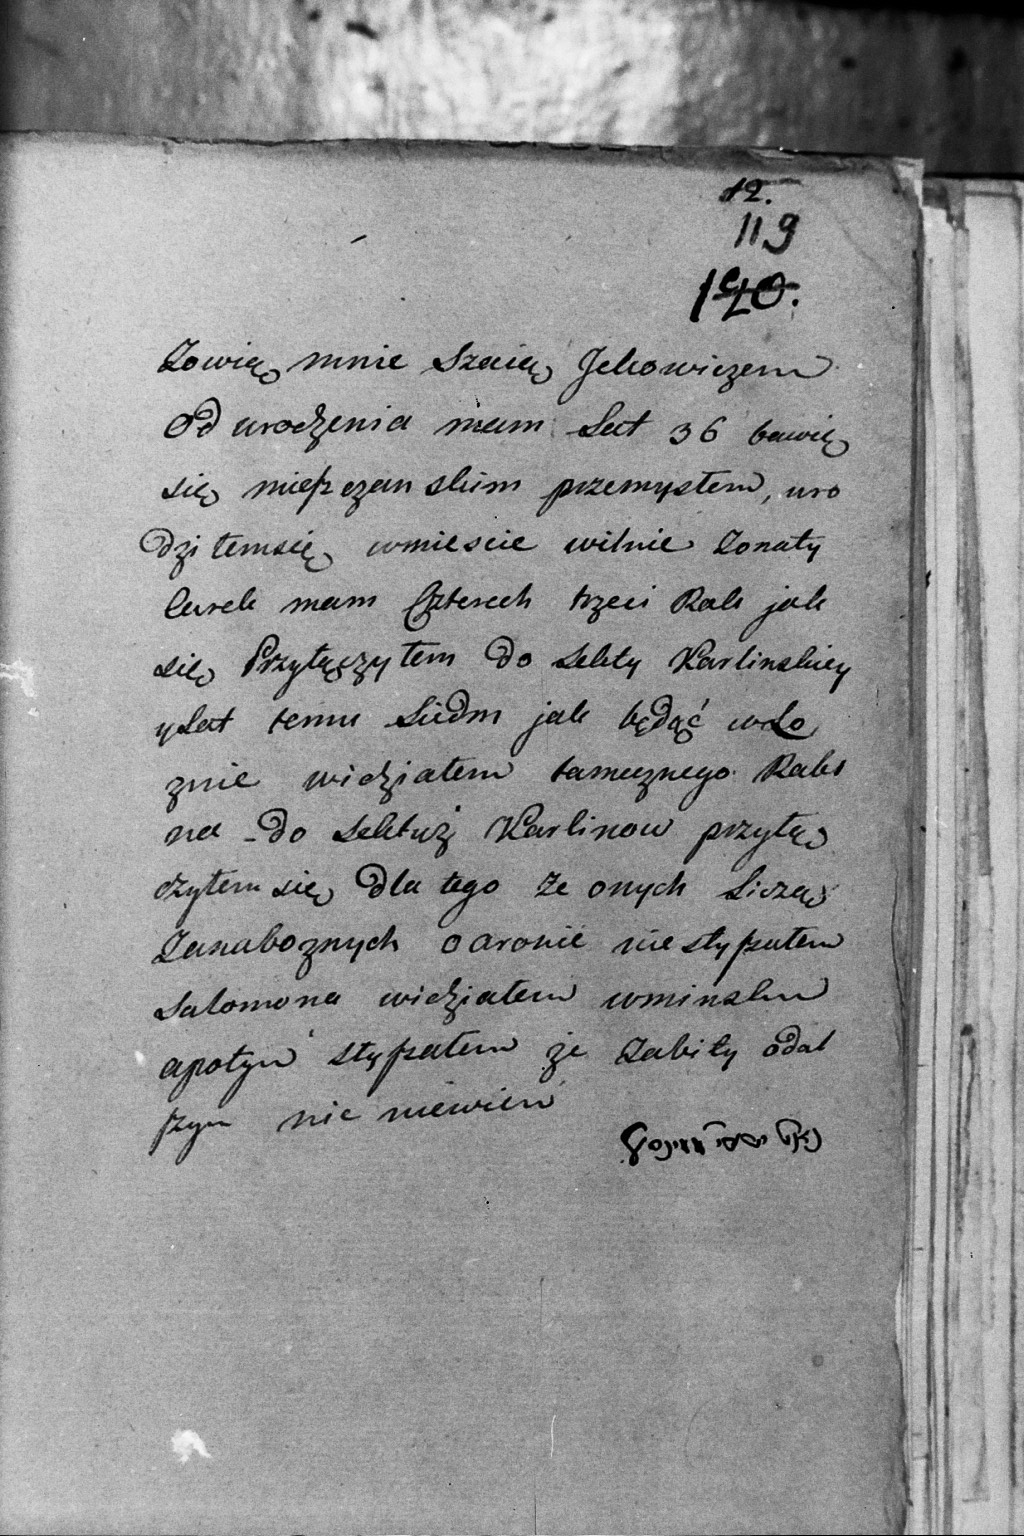 12.
119
Zowią mnie Szaią Jckowiczem
Od urodzenia mam Lat 36 bawię
się mieszczanskim przemysłem, uro
dziłemsię wmiescie wilnie Zonaty
Curek mam Czterech trzeci Rok jak
się Przyłączyłem do sekty Karlinskiey
y Lat temu siedm jak będąć w Lo
znie widziałem tamecznego Rabi
na do sektuż Karlinow przyłą
czyłem się dla tego że onych Liczą
Zanaboznych o aronie nie słyszałem
Salomona widziałem wminsku
apotym słyszałem że Zabiły odal
szym nic niewiem